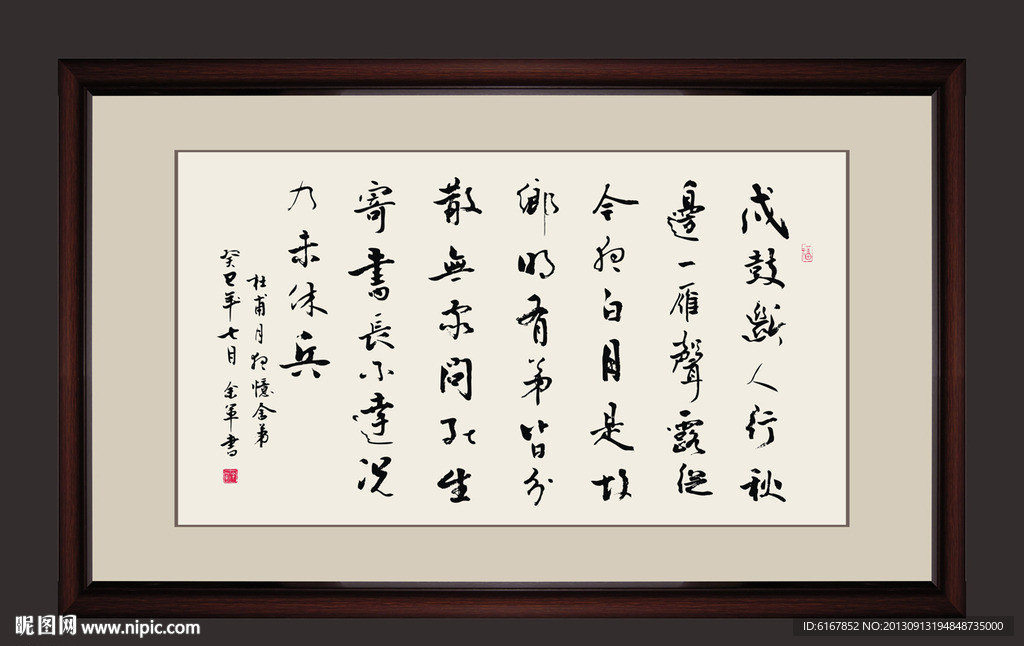 戍鼓斷人行秋
邊一雁聲露從
今夜白月是故
鄉明有弟皆分
散無家問死生
寄書長不達況
乃未休兵
杜甫月夜憶舍弟
癸巳年七月余軍書
昵图网 www.nipic.com
ID:6167852 NO:20130913194848735000